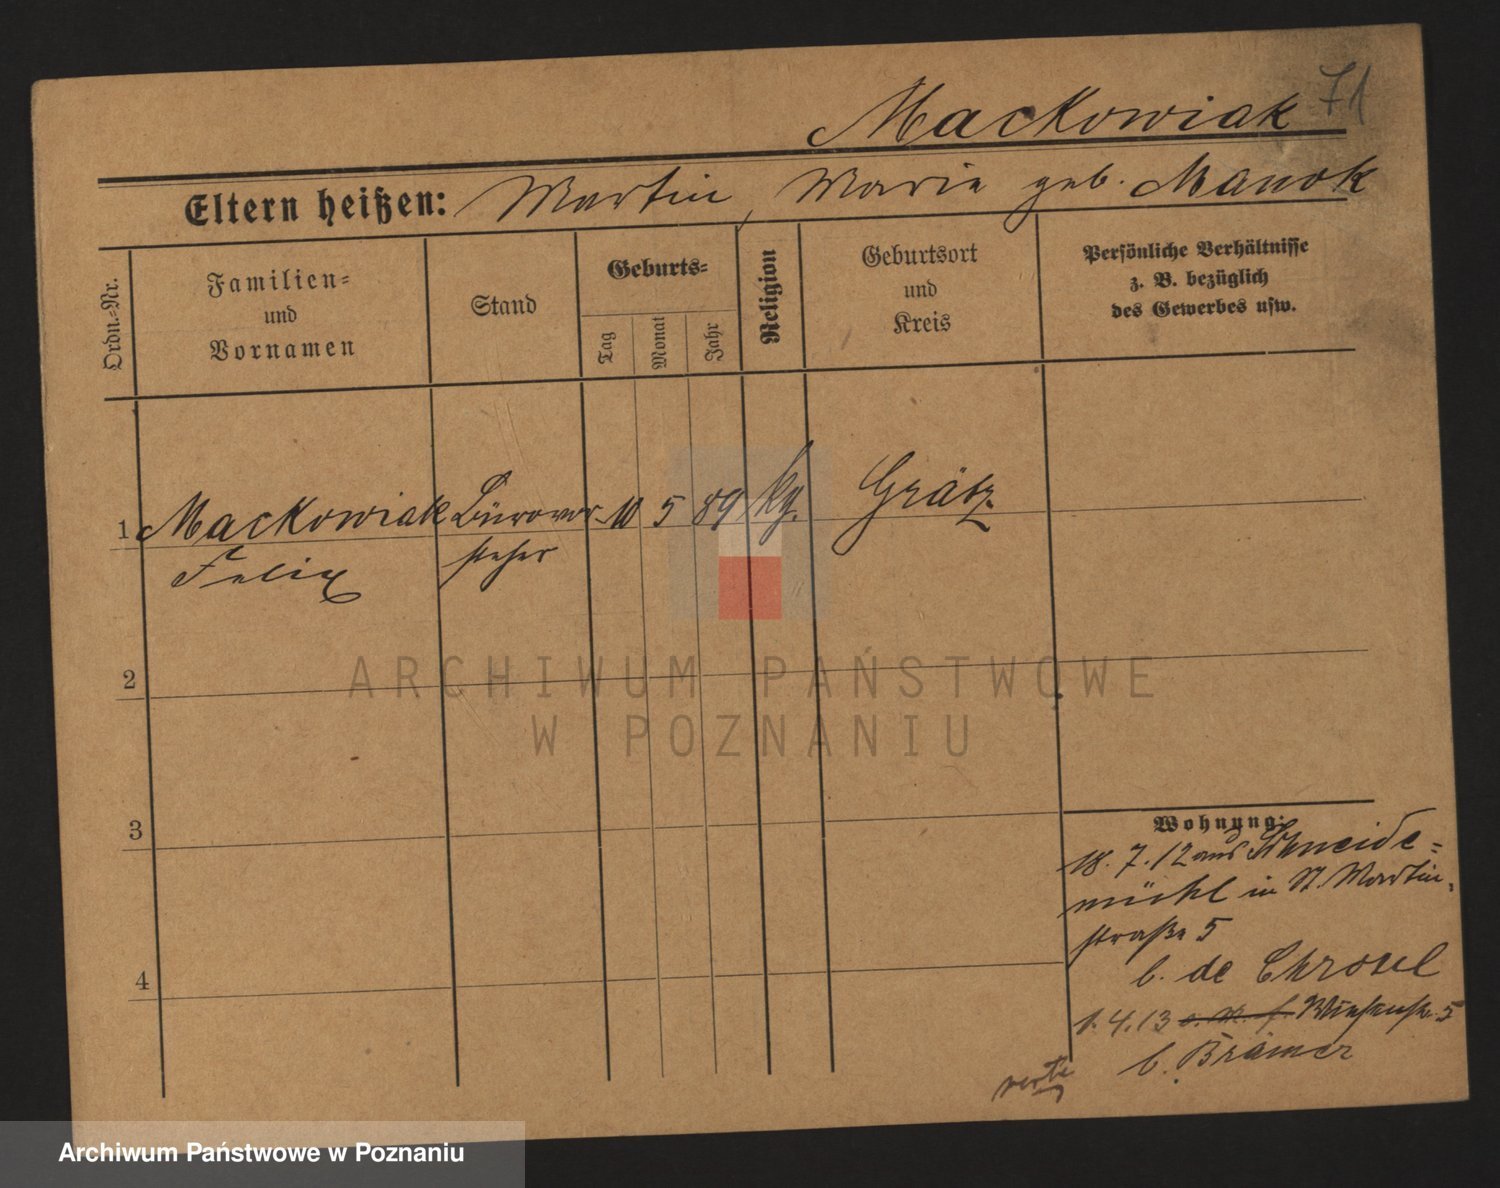 71
Mackowiak
Eltern heißen: Martin, Maria geb. Manok
Ordn.-Nr.
Familien-
und
Vornamen
Stand
Geburts-
Tag
Monat
Jahr
Religion
Geburtsort
und
Kreis
Persönliche Verhältnisse
z. B. bezüglich
des Gewerbes usw.
1 Mackowiak Bürovor- 10 5 89 kg. Grätz
Felix steher
2
3
4
Wohnung:
18. 7. 12 aus Schneide-
mühl in St. Martin-
straße 5
b. de Chrosel
1. 4. 13 Wiesenstr. 5
b. Brämer
verte
ARCHIWUM PAŃSTWOWE
W POZNANIU
Archiwum Państwowe w Poznaniu